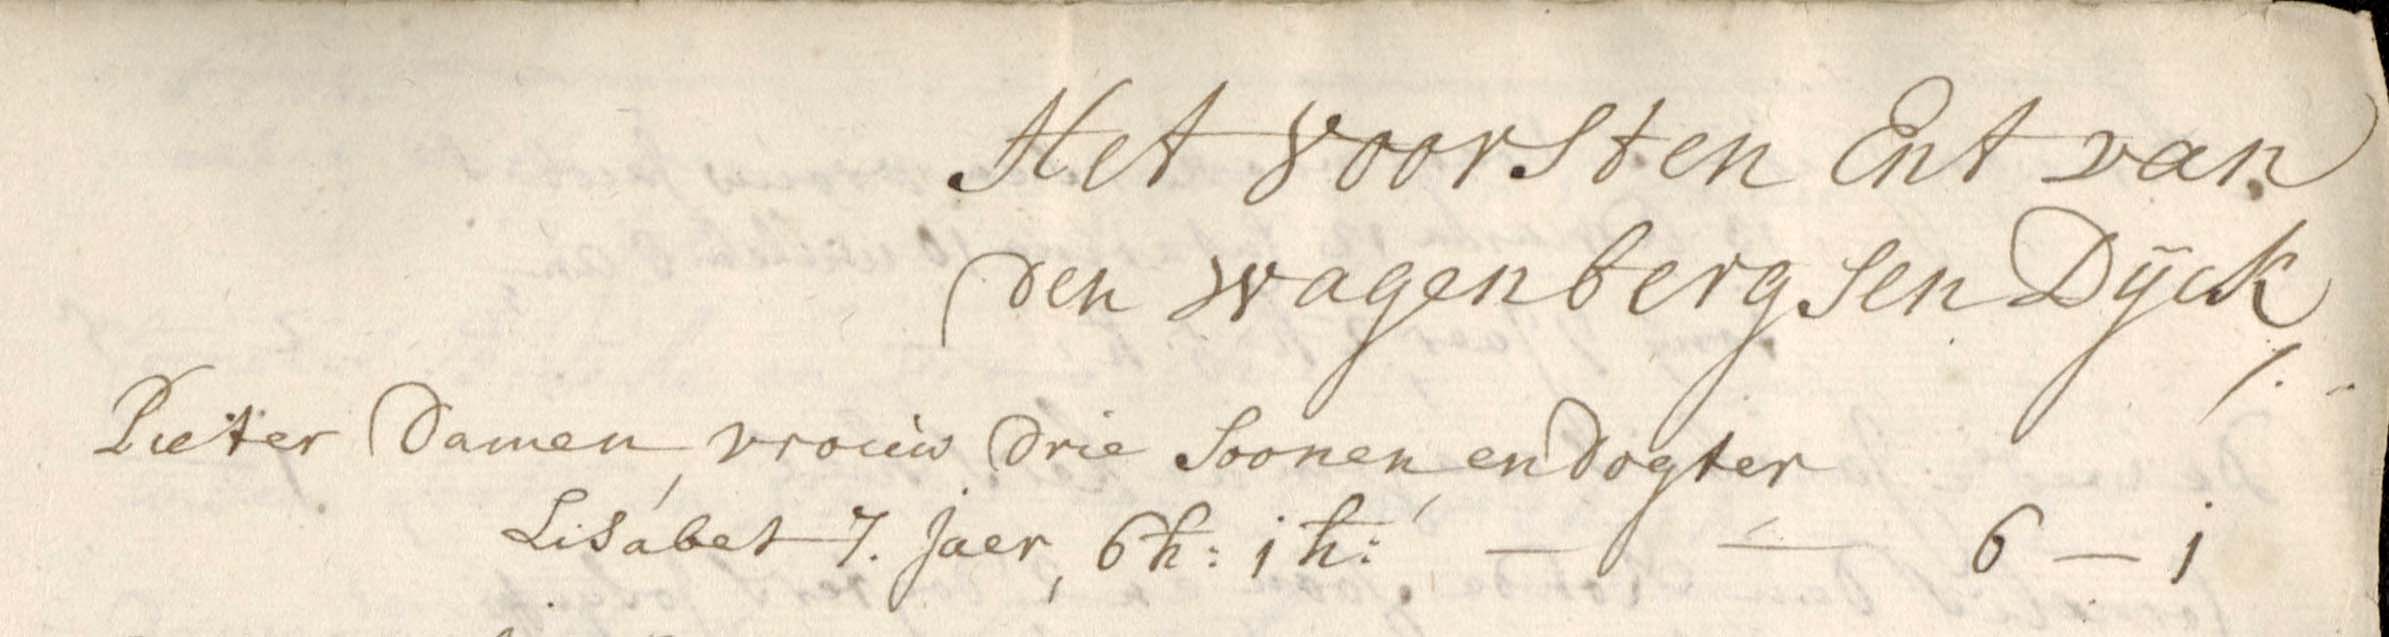 Het voorsten Ent van
den wagenbergsen Dÿck
Pieter Damen, vrouw drie Soonen en dogter
Lisabet 7. Jaer, 6 h: 1 h: — — 6 — 1